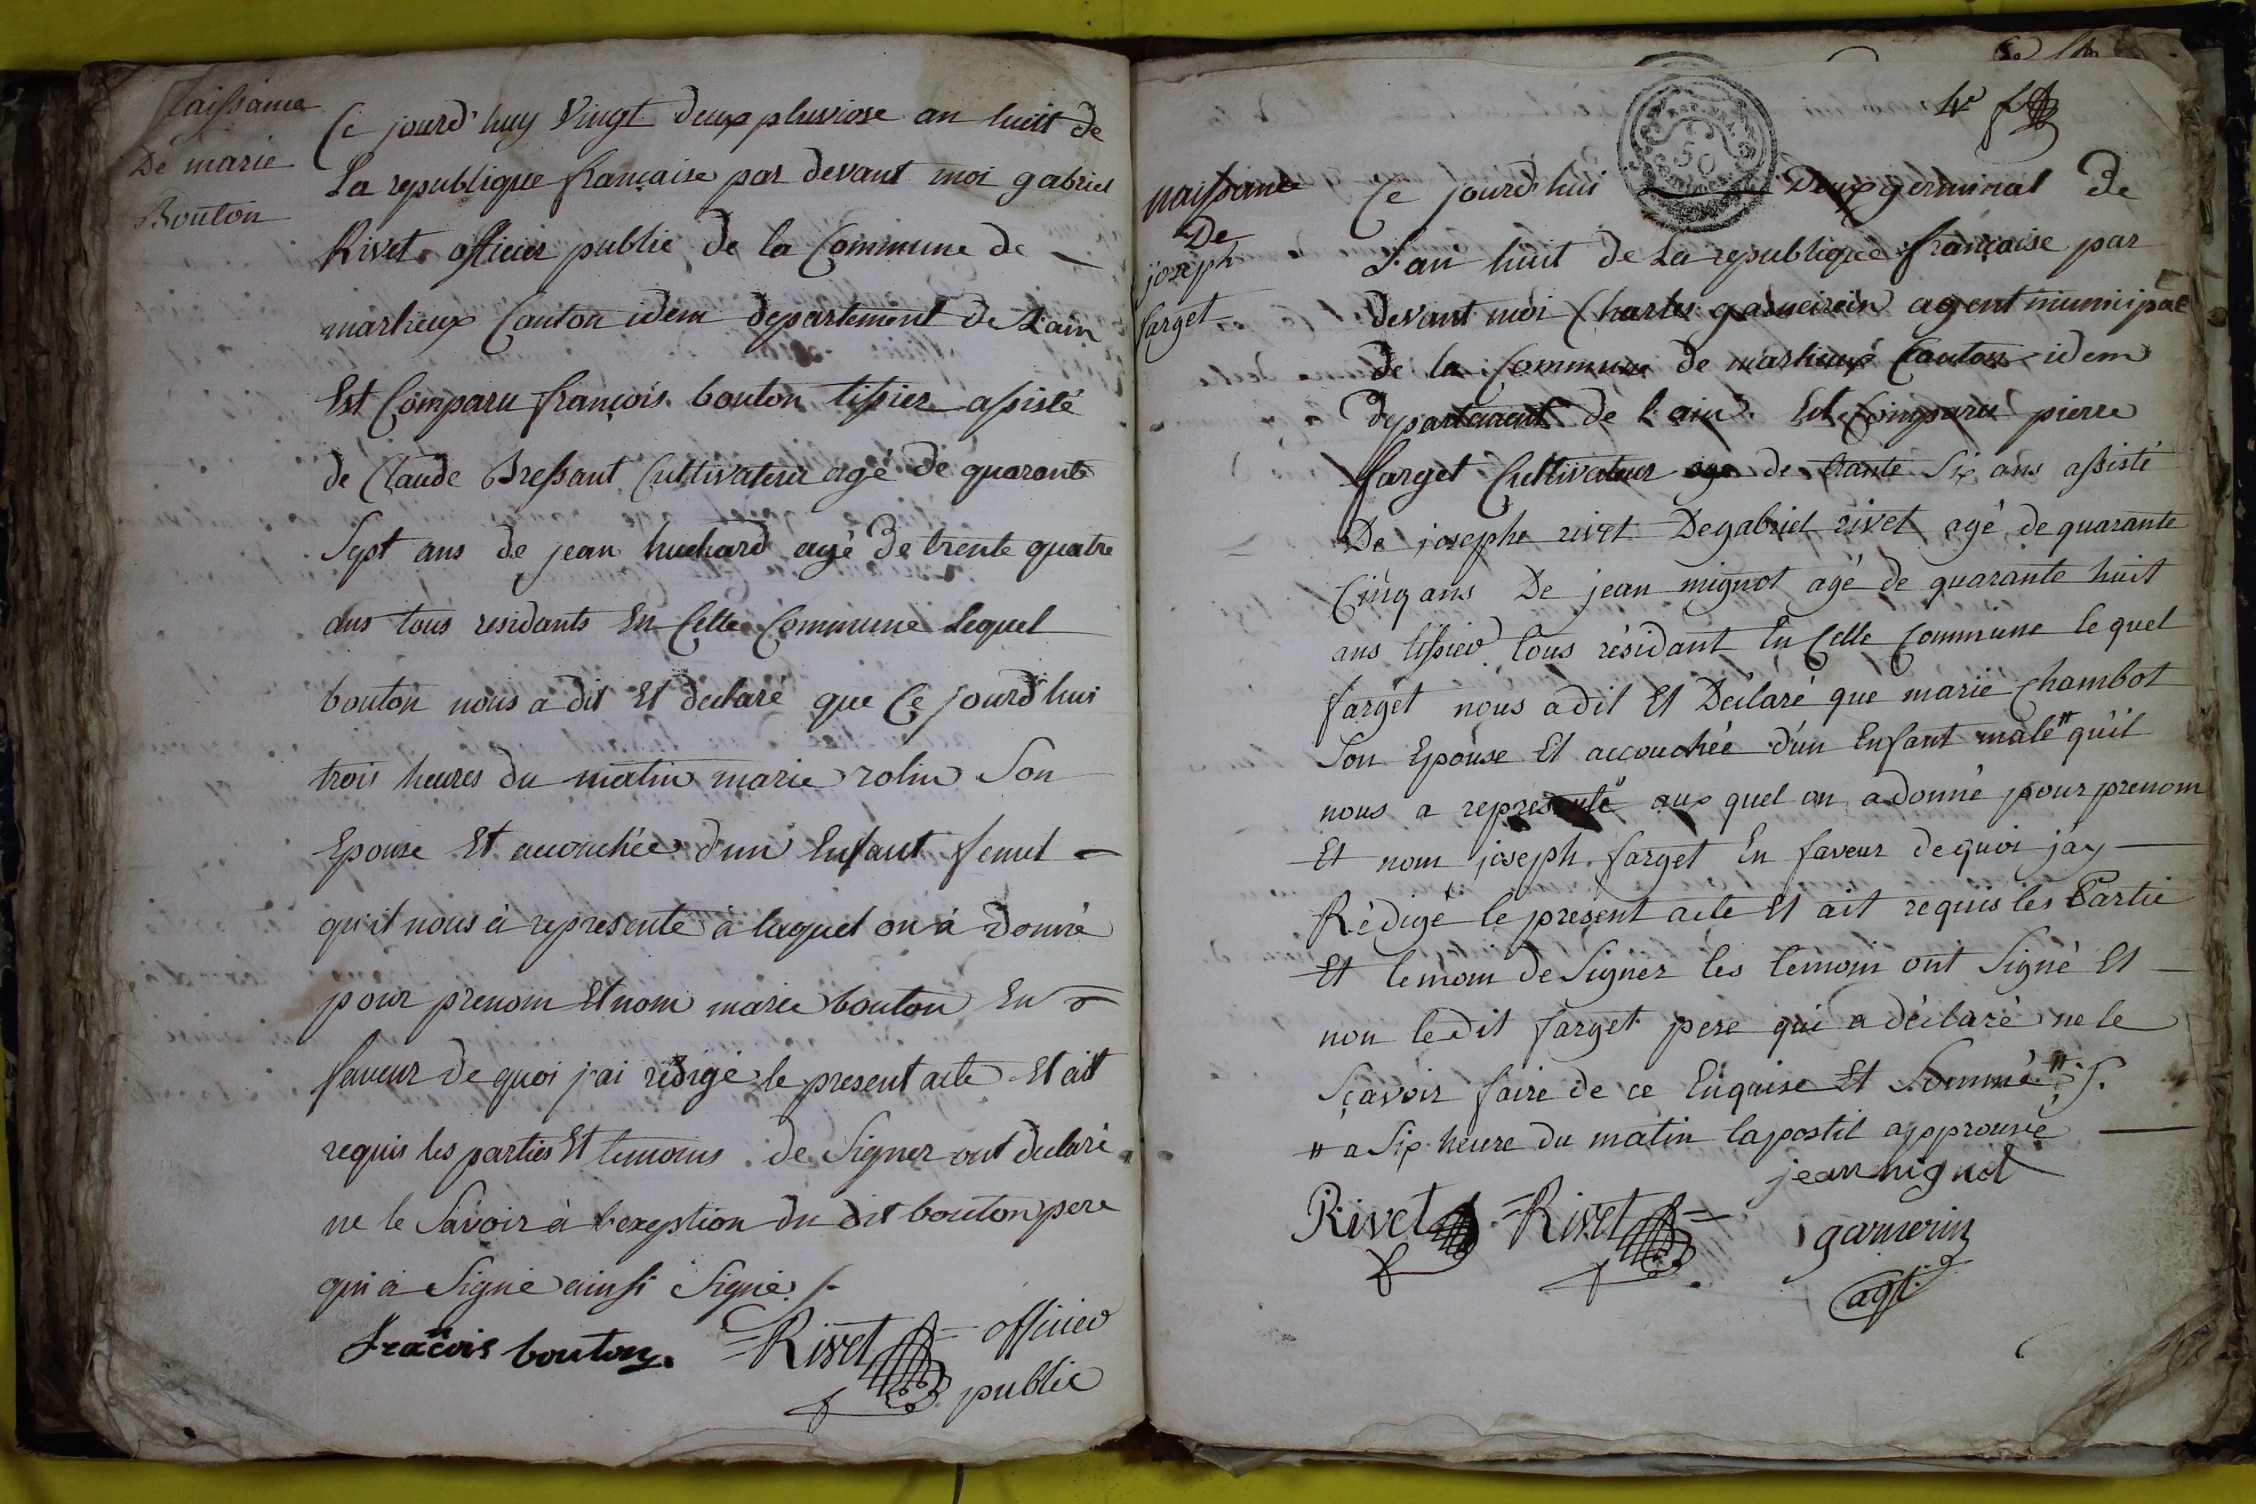 Naissance
De marie
Bouton
Ce jourd'huy Vingt deux pluviose an huit de
La republique française par devant moi gabriel
Rivet officier public de la Commune de
marlieux Canton idem departement de Lain
Est Comparu françois bouton tissier assisté
de Claude Bressant Cultivateur agé de quarante
Sept ans de jean huchard agé de trente quatre
ans tous residants En Cette Commune Lequel
bouton nous a dit Et declaré que Ce jourd'hui
trois heures du matin marie rolin Son
Epouse Et accouchée d'un Enfant femel
qu'il nous à representé à laquel on à Donné
pour prenom Et nom marie bouton En
faveur de quoi j'ai rédigé le present acte Et ait
requis les parties Et temoins de Signer ont declaré
ne le Savoir à l'exeption du dit bouton pere
qui à Signé ainsi Signé
francois bouton. Rivet officier
public
4e
50
naissance
De
joseph
farget
Ce jourd'hui Deux germinal De
L'an huit de La republique française par
devant moi Charles garneirein agent municipal
de la Commune de marlieux Canton idem
departement de L'ain Est Comparu pierre
farget Cultivateur age de trante Six ans assisté
De josephe rivet De gabriel rivet agé de quarante
Cinq ans De jean mignot agé de quarante huit
ans tissier tous résidant En Cette Commune le quel
farget nous a dit Et Déclaré que marie Chambot
Son Epouse Et accouchée d'un Enfant male " qu'il
nous a representé aux quel on a donné pour prenom
Et nom joseph farget En faveur de quoi j'ay
Rédigé le present acte Et ait requis les Partie
Et temoin de Signer les temoin ont Signé Et
non le dit farget pere qui a déclaré ne le
Sçavoir faire de ce Enquise Et Sommé "
" a Six heure du matin lapostil approuvé
jean mignot
Rivet Rivet garnerin
agt.